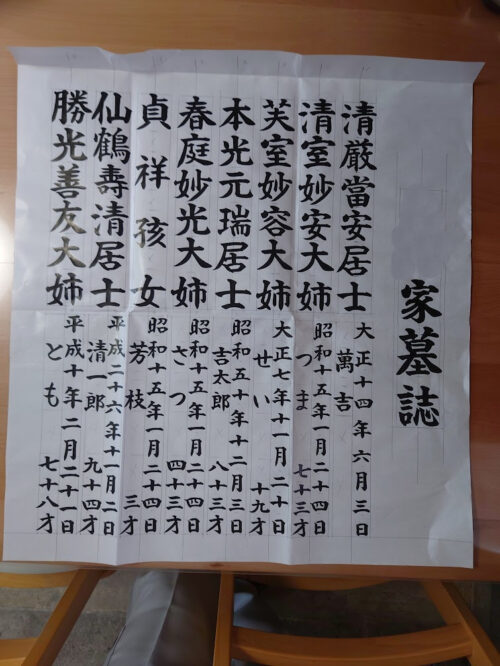 家墓誌
清厳當安居士 大正十四年六月三日
萬吉
清室妙安大姉 昭和十五年一月二十四日
つま 七十三才
芙室妙容大姉 大正七年十一月二十日
せい 十九才
本光元瑞居士 昭和五十年十二月三日
吉太郎 八十三才
春庭妙光大姉 昭和十五年一月二十四日
さつ 四十三才
貞祥孩女 昭和十五年一月二十四日
芳枝 三才
仙鶴壽清居士 平成二十六年十一月二日
清一郎 九十四才
勝光善友大姉 平成十年二月二十一日
とも 七十八才